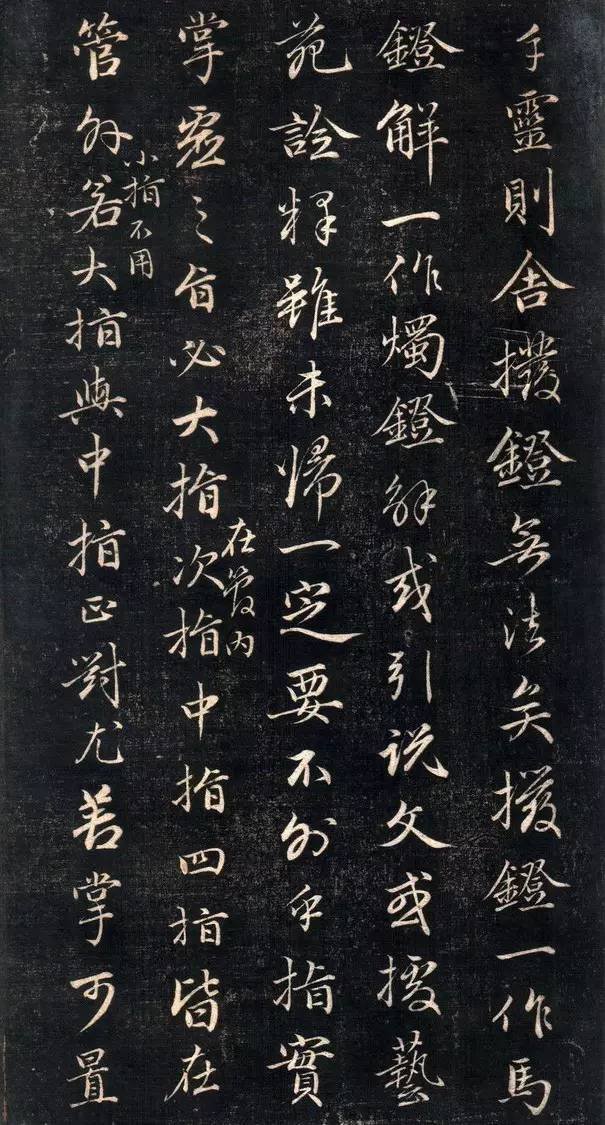 手靈則舍撥鐙無法矣撥鐙一作馬
鐙解一作燭鐙解或引說文或援藝
苑詮釋雖未歸一定要不外乎指實
在管内
掌虛之旨必大指次指中指四指皆在
小指不用
管外若大指與中指正對尤善掌可置